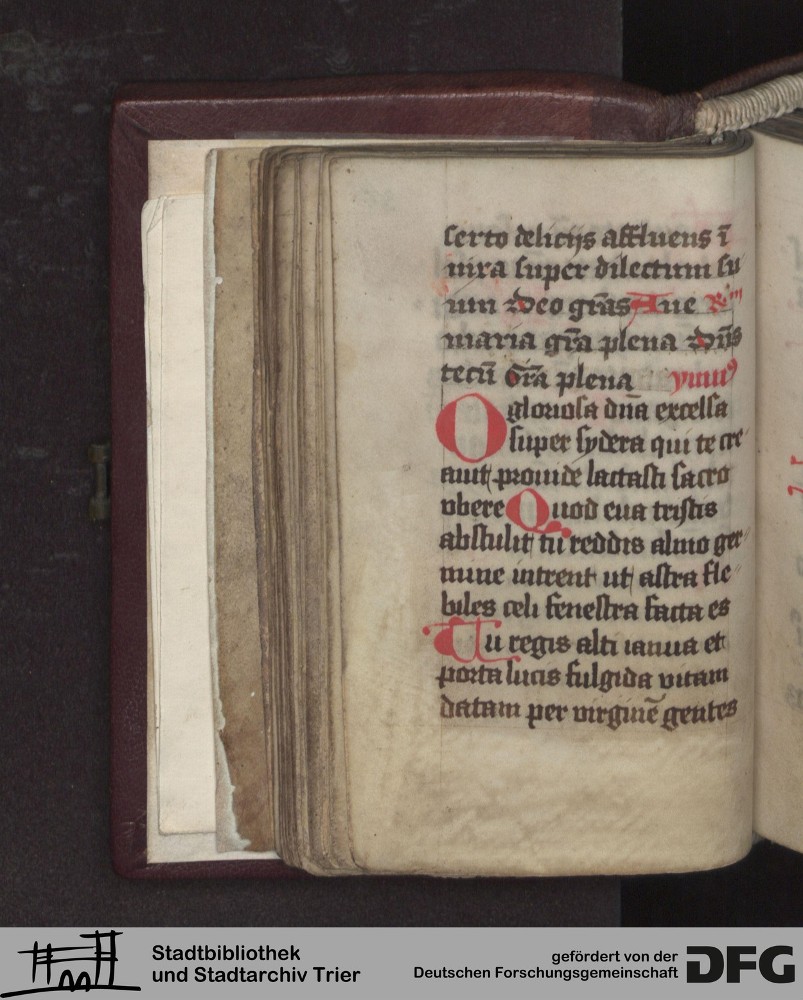 serto delicijs affluens ī
nixa super dilectum su
um Deo grās Aue R̃m
maria grā plena Dn̄s
tecū Grā plena ymnꝰ
O gloriosa dn̄a excelsa
super sydera qui te cre
auit prouide lactasti sacro
vbere Quod eua tristis
abstulit tu reddis almo ger
mine intrent ut astra fle
biles celi fenestra facta es
Tu regis alti ianua et
porta lucis fulgida vitam
datam per virginē gentes
Stadtbibliothek
und Stadtarchiv Trier
gefördert von der
Deutschen Forschungsgemeinschaft
DFG